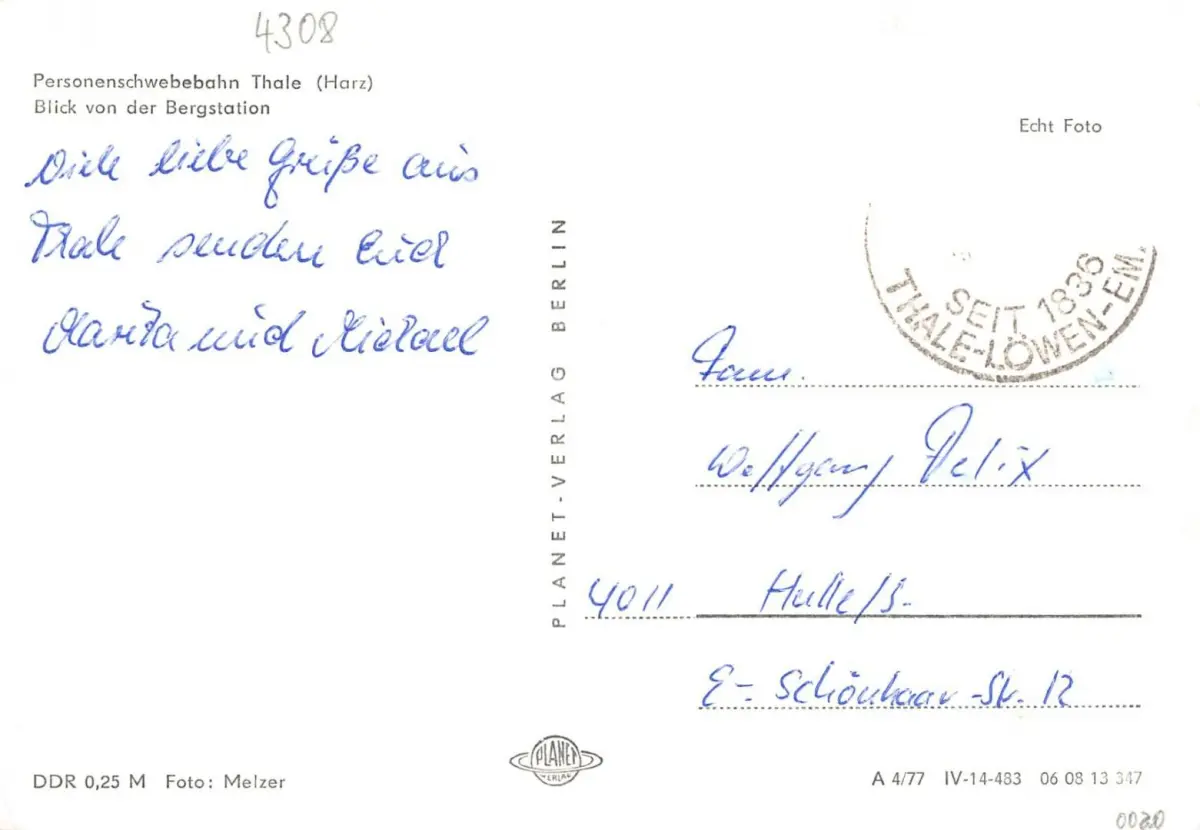 4308
Personenschwebebahn Thale (Harz)
Blick von der Bergstation
Echt Foto
Viele liebe Grüße aus
Thale senden Euch
Marita und Michael
SEIT 1836
THALE-LÖWEN-EM.
PLANET-VERLAG BERLIN
Fam.
Wolfgang Felix
4011 Halle/S.
E.-Schönhaar-Str. 12
PLANET
VERLAG
DDR 0,25 M Foto: Melzer
A 4/77 IV-14-483 06 08 13 347
0020